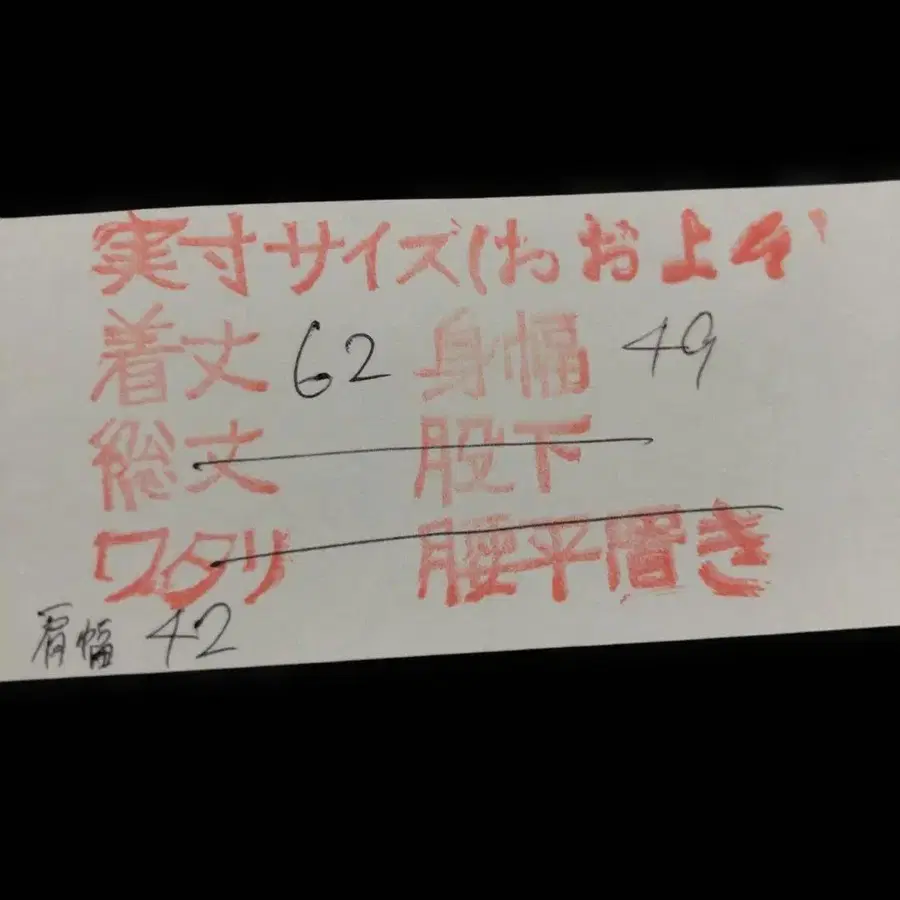 実寸サイズ(おおよそ
着丈 62 身幅 49
総丈 股下
ワタリ 腰平置き
肩幅 42